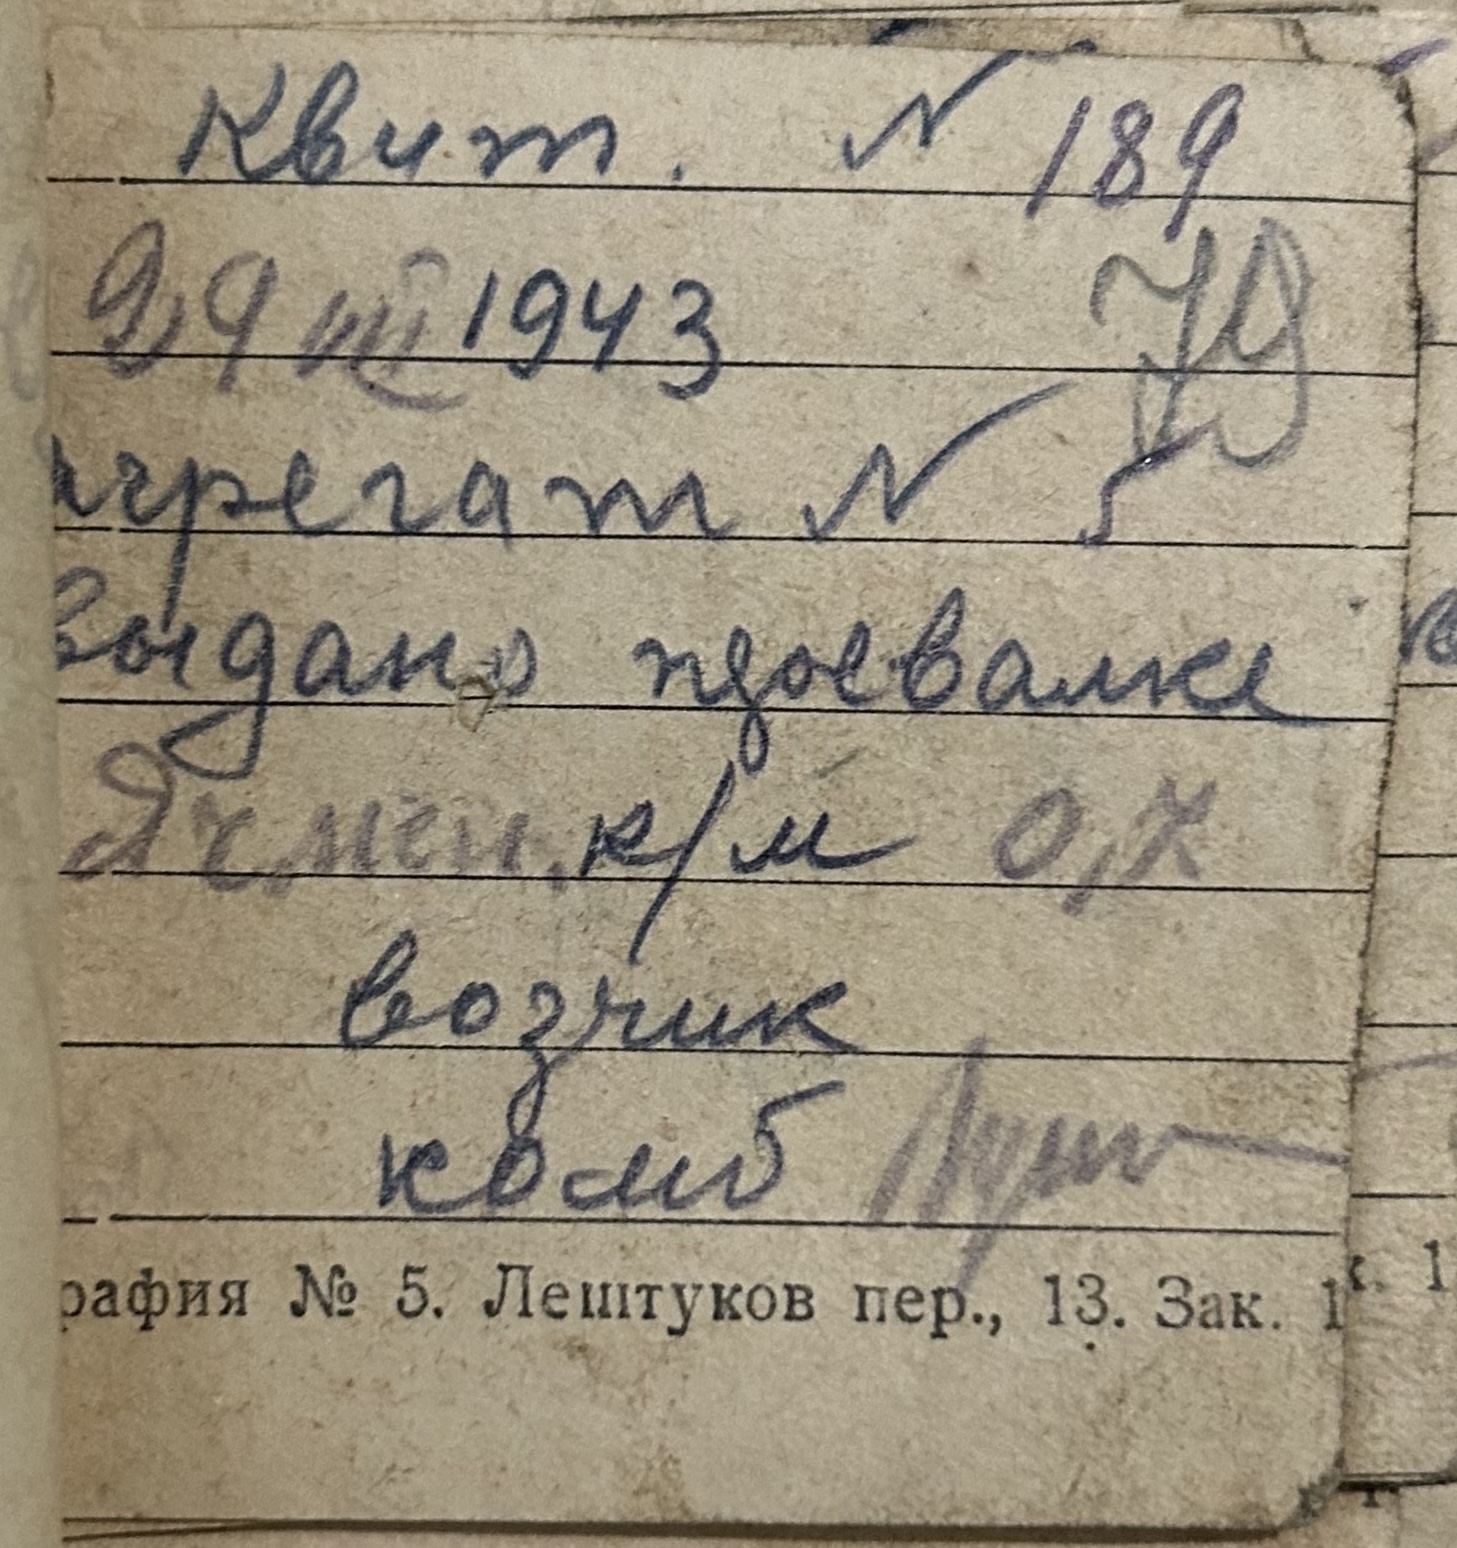 Квит. № 189
29 VIII 1943
агрегат № 5
выдано
Ячмен. к/м 0,7
возчик
комб
рафия № 5. Лештуков пер., 13. Зак. 1